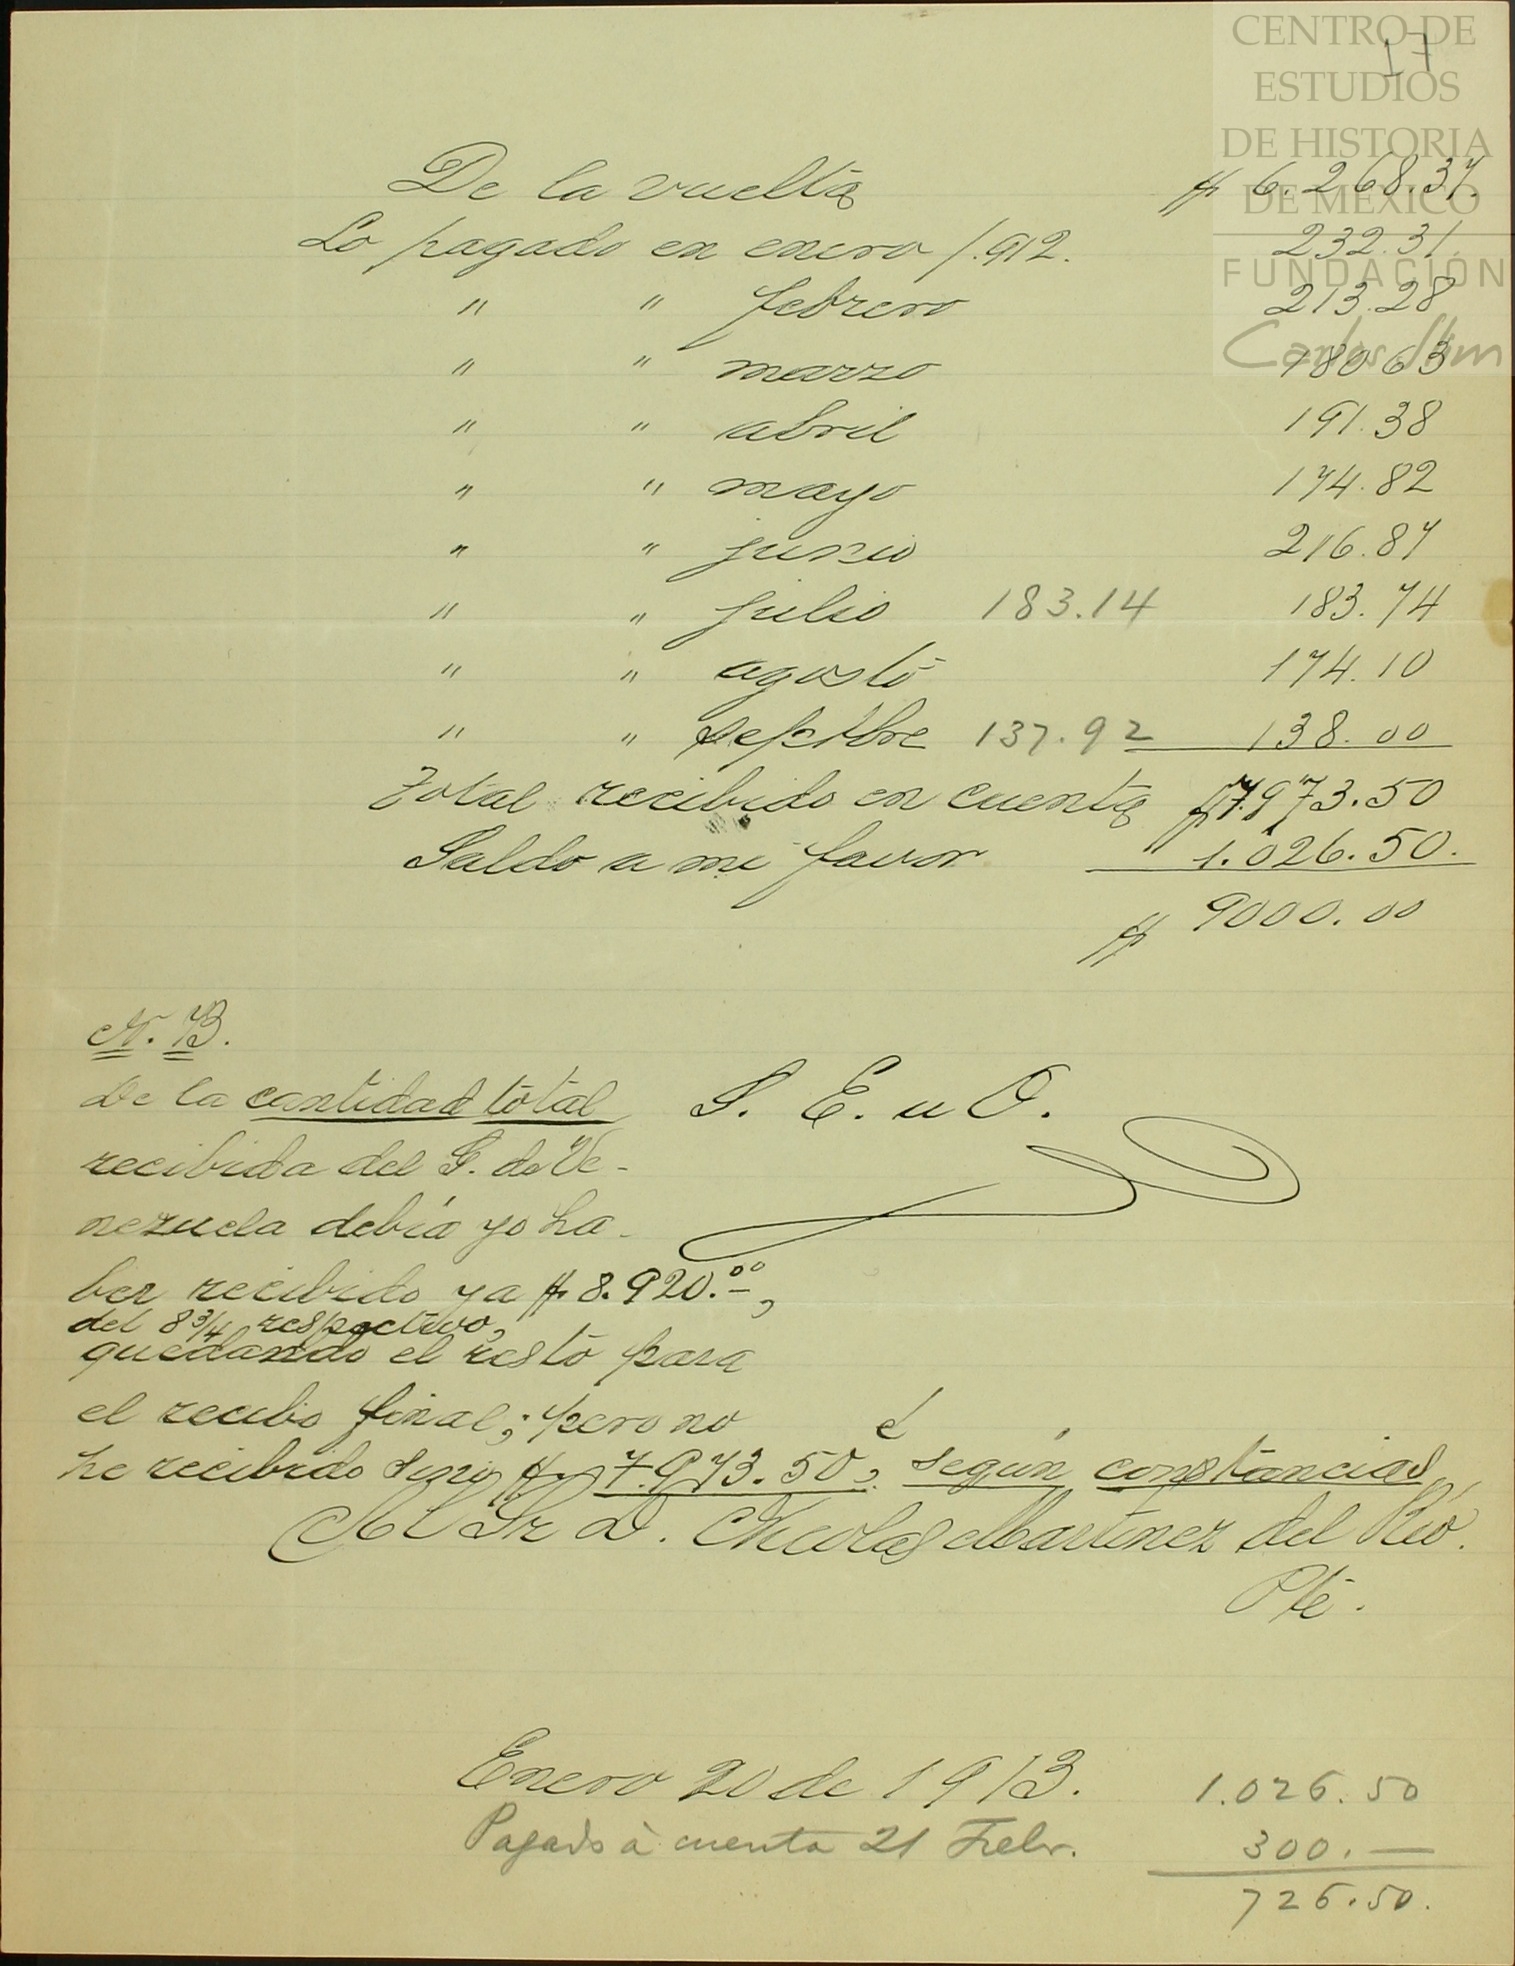 CENTRO DE
ESTUDIOS
DE HISTORIA
DE MÉXICO
FUNDACIÓN
Carlos Slim
17
De la vuelta $ 6.268.37.
Lo pagado en enero 1.912. 232.31.
" " febrero 213.28
" " marzo 180.63
" " abril 191.38
" " mayo 174.82
" " junio 216.87
" " julio 183.14 183.74
" " agosto 174.10
" " septbre 137.92 138.00
Total recibido en cuenta $ 7.973.50
Saldo a mi favor 1.026.50.
$ 9000.00
N. B.
De la cantidad total S. E. u O.
recibida del G. de Ve-
nezuela debía yo ha-
ber recibido ya $ 8.920.00,
del 8 3/4 respectivo,
quedando el resto para
el recibo final; pero no
he recibido sino $ 7.973.50, según constancias
Al Sr D. Nicolas Martinez del Rio.
Pte.
Enero 20 de 1913. 1.026.50
Pagado à cuenta 21 Febr. 300.—
726.50.